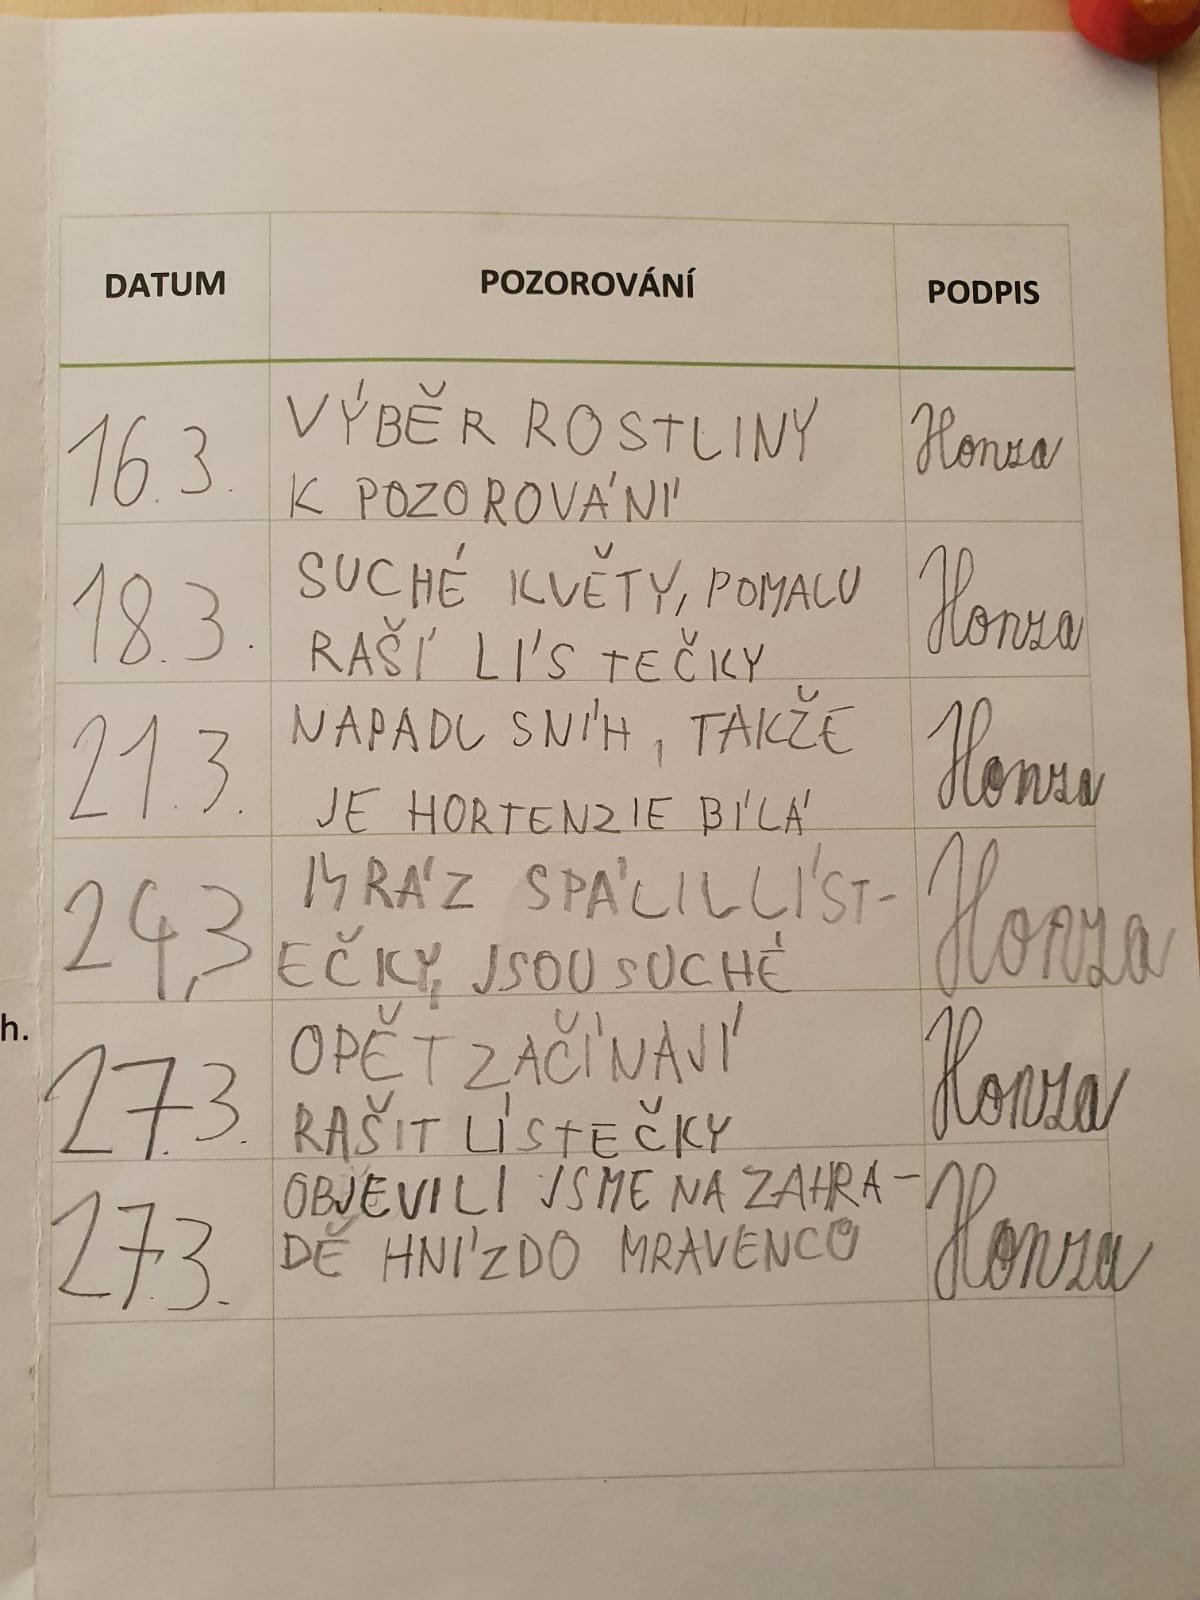 DATUM POZOROVÁNÍ PODPIS
16.3. VÝBĚR ROSTLINY Honza
K POZOROVÁNÍ
18.3. SUCHÉ KVĚTY, POMALU Honza
RAŠÍ LÍSTEČKY
21.3. NAPADL SNÍH, TAKŽE Honza
JE HORTENZIE BÍLÁ
24,3 MRÁZ SPÁLIL LÍST- Honza
EČKY, JSOU SUCHÉ
h.
27.3. OPĚT ZAČÍNAJÍ Honza
RAŠIT LÍSTEČKY
27.3. OBJEVILI JSME NA ZAHRA- Honza
DĚ HNÍZDO MRAVENCŮ